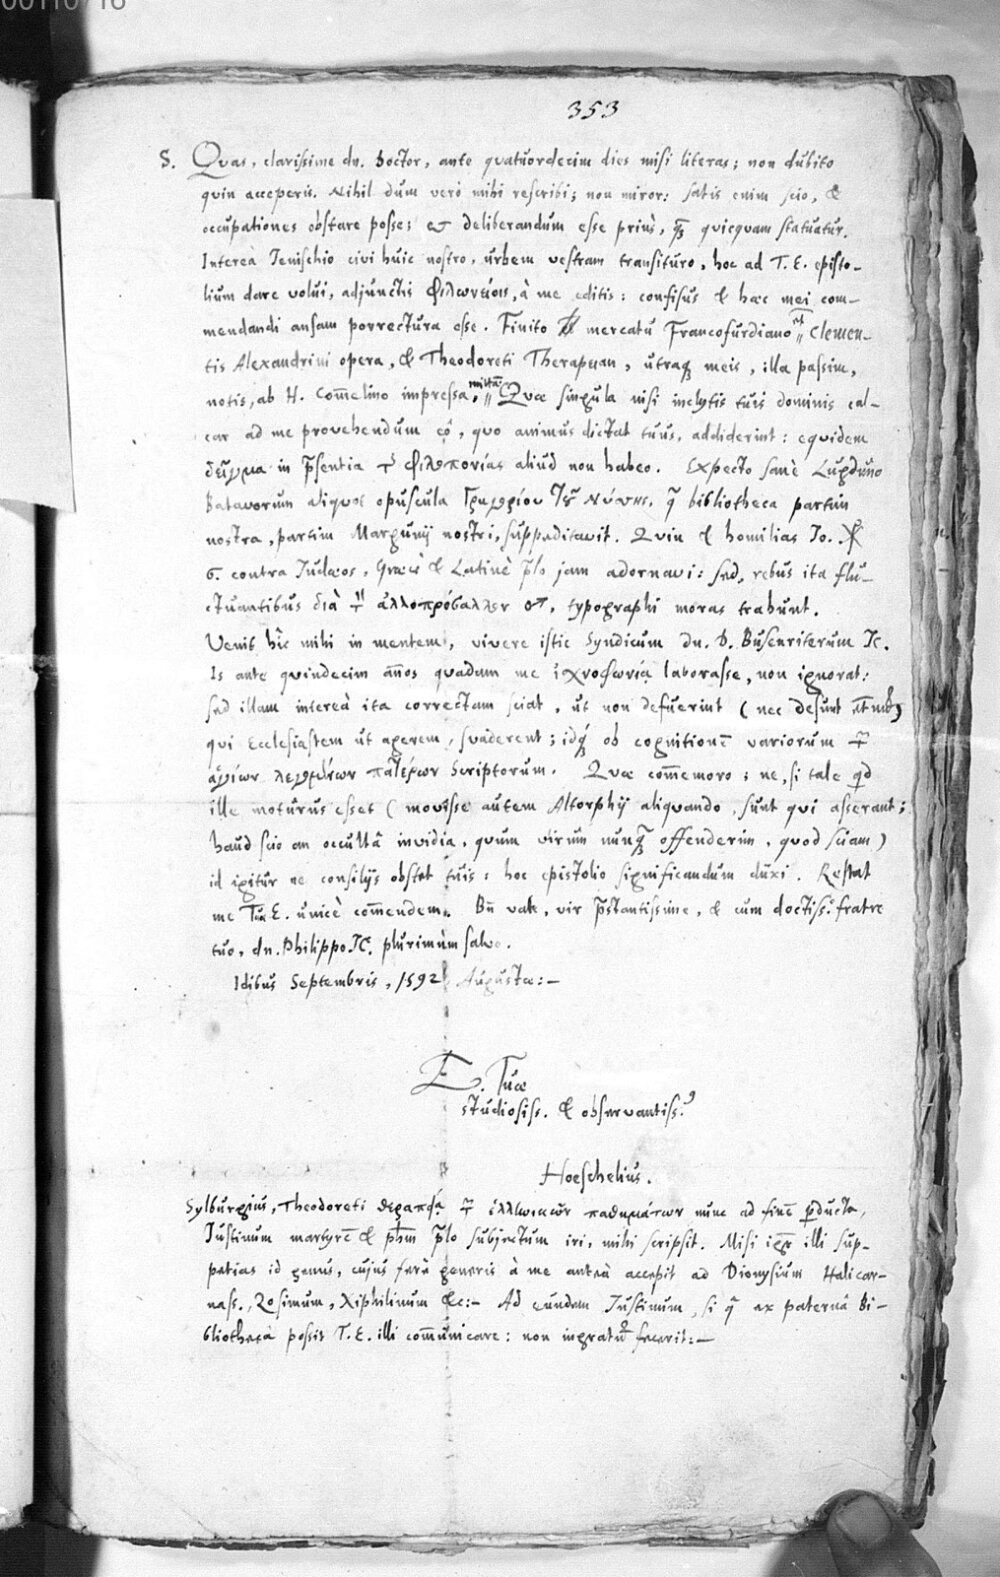 00110716
353
S. Quas, clarissime dn. Doctor, ante quatuordecim dies misi literas; non dubito
quin acceperis. Nihil dum verò mihi rescribi; non miror: satis enim scio, &
occupationes obstare posse; et deliberandum esse priùs, quicquam statuatur.
Intereà Jenischio civi huic nostro, urbem vestram transituro, hoc ad T. E. episto-
lium dare volui, adjunctis Φιλωνείοις, à me editis: confisus & hæc mei com-
mendandi ansam porrectura esse. Finito mercatu Francofurdiano et Clemen-
tis Alexandrini opera, & Theodoreti Therapeian, utraq; meis, illa passim,
notis, ab H. Com̃elino impressa, mittã. Quæ singula nisi inclytis tuis dominis cal-
car ad me provehendum eo, quo animus dictat tuus, addiderint: equidem
δεῖγμα in p̃sentia τ͂ φιλοπονίας aliud non habeo. Expecto sanè Lugduno
Batavorum aliquot opuscula Γρηγορίου τȣ͂ Νύσσης, q̃ bibliotheca partim
nostra, partim Margunij nostri, suppeditavit. Quin & homilias Io.
6. contra Judæos, Græcè & Latinè p̃lo jam adornavi: sed, rebus ita flu-
ctuantibus διὰ τ͂ ἀλλοπρόσαλλον typographi moras trahunt.
Venit hîc mihi in mentem, vivere istic Syndicum dn. D. Busenriterum IC.
Is ante quindecim años quadam me ἰσχνοφωνίᾳ laborasse, non ignorat:
sed illam intereà ita correctam sciat, ut non defuerint (nec desunt etm̃)
qui Ecclesiasten ut agerem, suaderent; idq; ob cognitionẽ variorum τ͂
ἁγίων λεγομένων πατέρων Scriptorum. Quæ com̃emoro; ne, si tale qd
ille moturus esset (movisse autem Altorphij aliquando, sunt qui asserant;
haud scio an occultâ invidiâ, quum virum nunq̃ offenderim, quod sciam)
id igitur ne consilijs obstet tuis: hoc epistolio significandum duxi. Restat
me Tuæ E. unicè com̃endem. Bñ vale, vir p̃stantissime, & cum doctiss.º fratre
tuo, dn. Philippo IC. plurimùm salve.
Idibus Septembris, 1592 Augustæ:-
E. Tuæ
studiosiss. & observantiss.
Hoeschelius.
Sylburgius, Theodoreti θεραπεία τ͂ ἑλληνικῶν παθημάτων nunc ad finẽ p̱ducta,
Justinum martyrẽ & ph̃m p̃lo subjectum iri, mihi scripsit. Misi igr̃ illi sup-
petias id genus, cujus ferè generis à me anteà accepit ad Dionysium Halicar-
nass., Zosimum, Xiphilinum &c:- Ad eundem Justinum, si q̃ ex paternâ Bi-
bliothecâ possit T. E. illi com̃unicare: non ingratũ fecerit:-